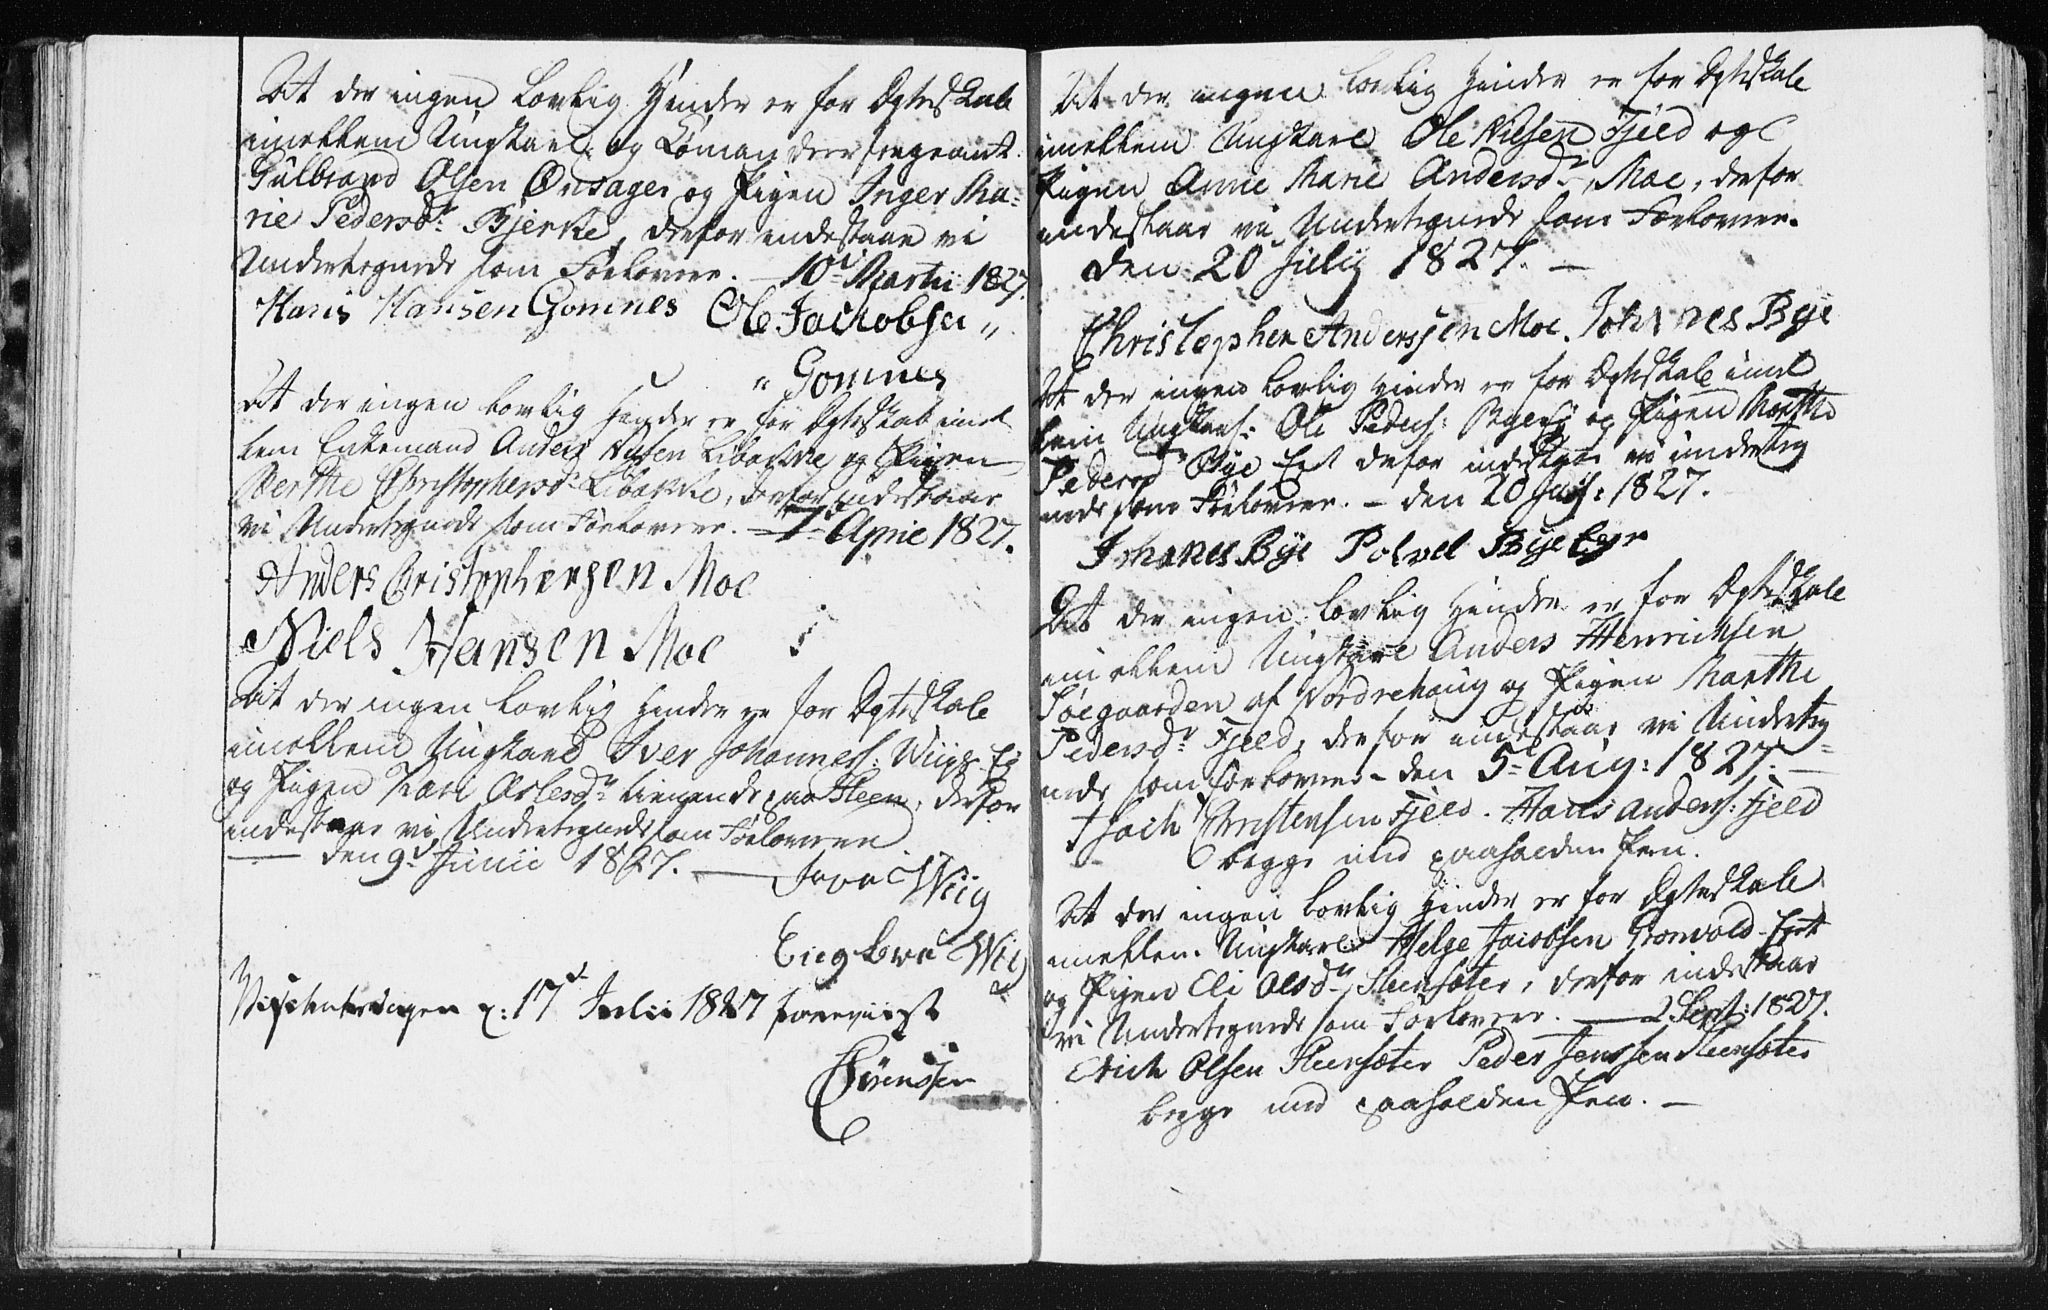 At der ingen lovlig Hinder er for Egteskab
imellem Ungkarl og Commandeersergeant
Gulbrand Olsen Onsager og Pigen Inger Ma-
rie Pedersdr. Bjerke, derfor indestaae vi
Undertegnede som Forlovere. – 10de Martii 1827.
Hans Hansen Gomnes Ole Jackobsen „
„ Gomnes
At der ingen lovlig Hinder er for Egteskab imel
lem Enkemand Anders Nilsen Libakke og Pigen
Berthe Christophersdr. Libakke, derfor indestaae
vi Undertegnede som Forlovere. – 7de April 1827.
Anders Cristophersen Moe
Niels Hansen Moe
At der ingen lovlig Hinder er for Egteskab
imellem Ungkarl Iver Johanness: Wiigs Ei
og Pigen Kari Aslesdr. tienende paa Steen, derfor
indestaae vi Undertegnede som Forlovere
– den 9de Junii 1827. – Wiig
Engebret Wiig
Visitatsdagen d: 17de Julii 1827 foreviist
Sörenssen
At der ingen lovlig Hinder er for Egteskab
imellem Ungkarl Ole Nilsen Fjeld og
Pigen Anne Marie Andersdr. Moe, derfor
indestaae vi Undertegnede som Forlovere.
den 20de Julij 1827. –
Christopher Anderssen Moe. Johannes Bye
At der ingen lovlig Hinder er for Egteskab imel
lem Ungkarl: Ole Peders: og Pigen Marthe
Pedersdr. Bye Eiet derfor indestaae vi underteg
nede som Forlovere. – den 20 Julij: 1827.
Johanes Bye Povel Bye Eye
At der ingen lovlig Hinder er for Egteskab
imellem Ungkarl Anders Henrichsen
Søegaarden af Nordrehaug og Pigen Marthe
Pedersdr. Fjeld, derfor indestaae vi Underteg
nede som Forlovere – den 5te Aug: 1827. –
Isach Christensen Fjeld. Hans Anders: Fjeld
begge med paaholden Pen.
At der ingen lovlig Hinder er for Egteskab
imellem Ungkarl Helge Jacobsen Gronvold Eiet
og Pigen Eli Olsdr. Steensæter, derfor indestaae
vi Undertegnede som Forlovere. – 2 Sept: 1827.
Erich Olsen Steensæter Peder Jenssen Steensæter
begge med paaholden Pen. –